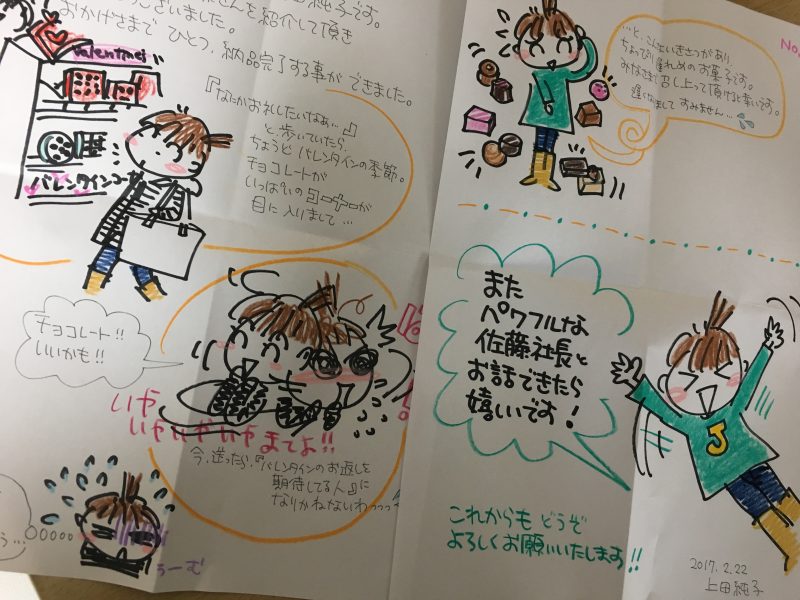 純子です。
ございました。
さんを紹介して頂き
おかげさまで ひとつ、納品完了する事が できました。
Valentine
バレンタインコー
『なにかお礼したいなぁ…』
と 歩いていたら、
ちょうど バレンタインの季節。
チョコレートが
いっぱいの コーナーが
目に入りまして…
チョコレート!!
いいかも!!
いや
いやいやいや まてよ!!
今、送ったら、『バレンタインのお返しを
期待してる人』に
なりかねないわっっっ
うーむ
No.
…と、こんないきさつがあり、
ちょっぴり遅れめのお菓子です。
みなさまで召し上って頂けると幸いです。
遅くなりまして すみません…
また
パワフルな
佐藤社長と
お話できたら
嬉しいです!
J
これからも どうぞ
よろしくお願いいたします!!
2017.2.22
上田純子